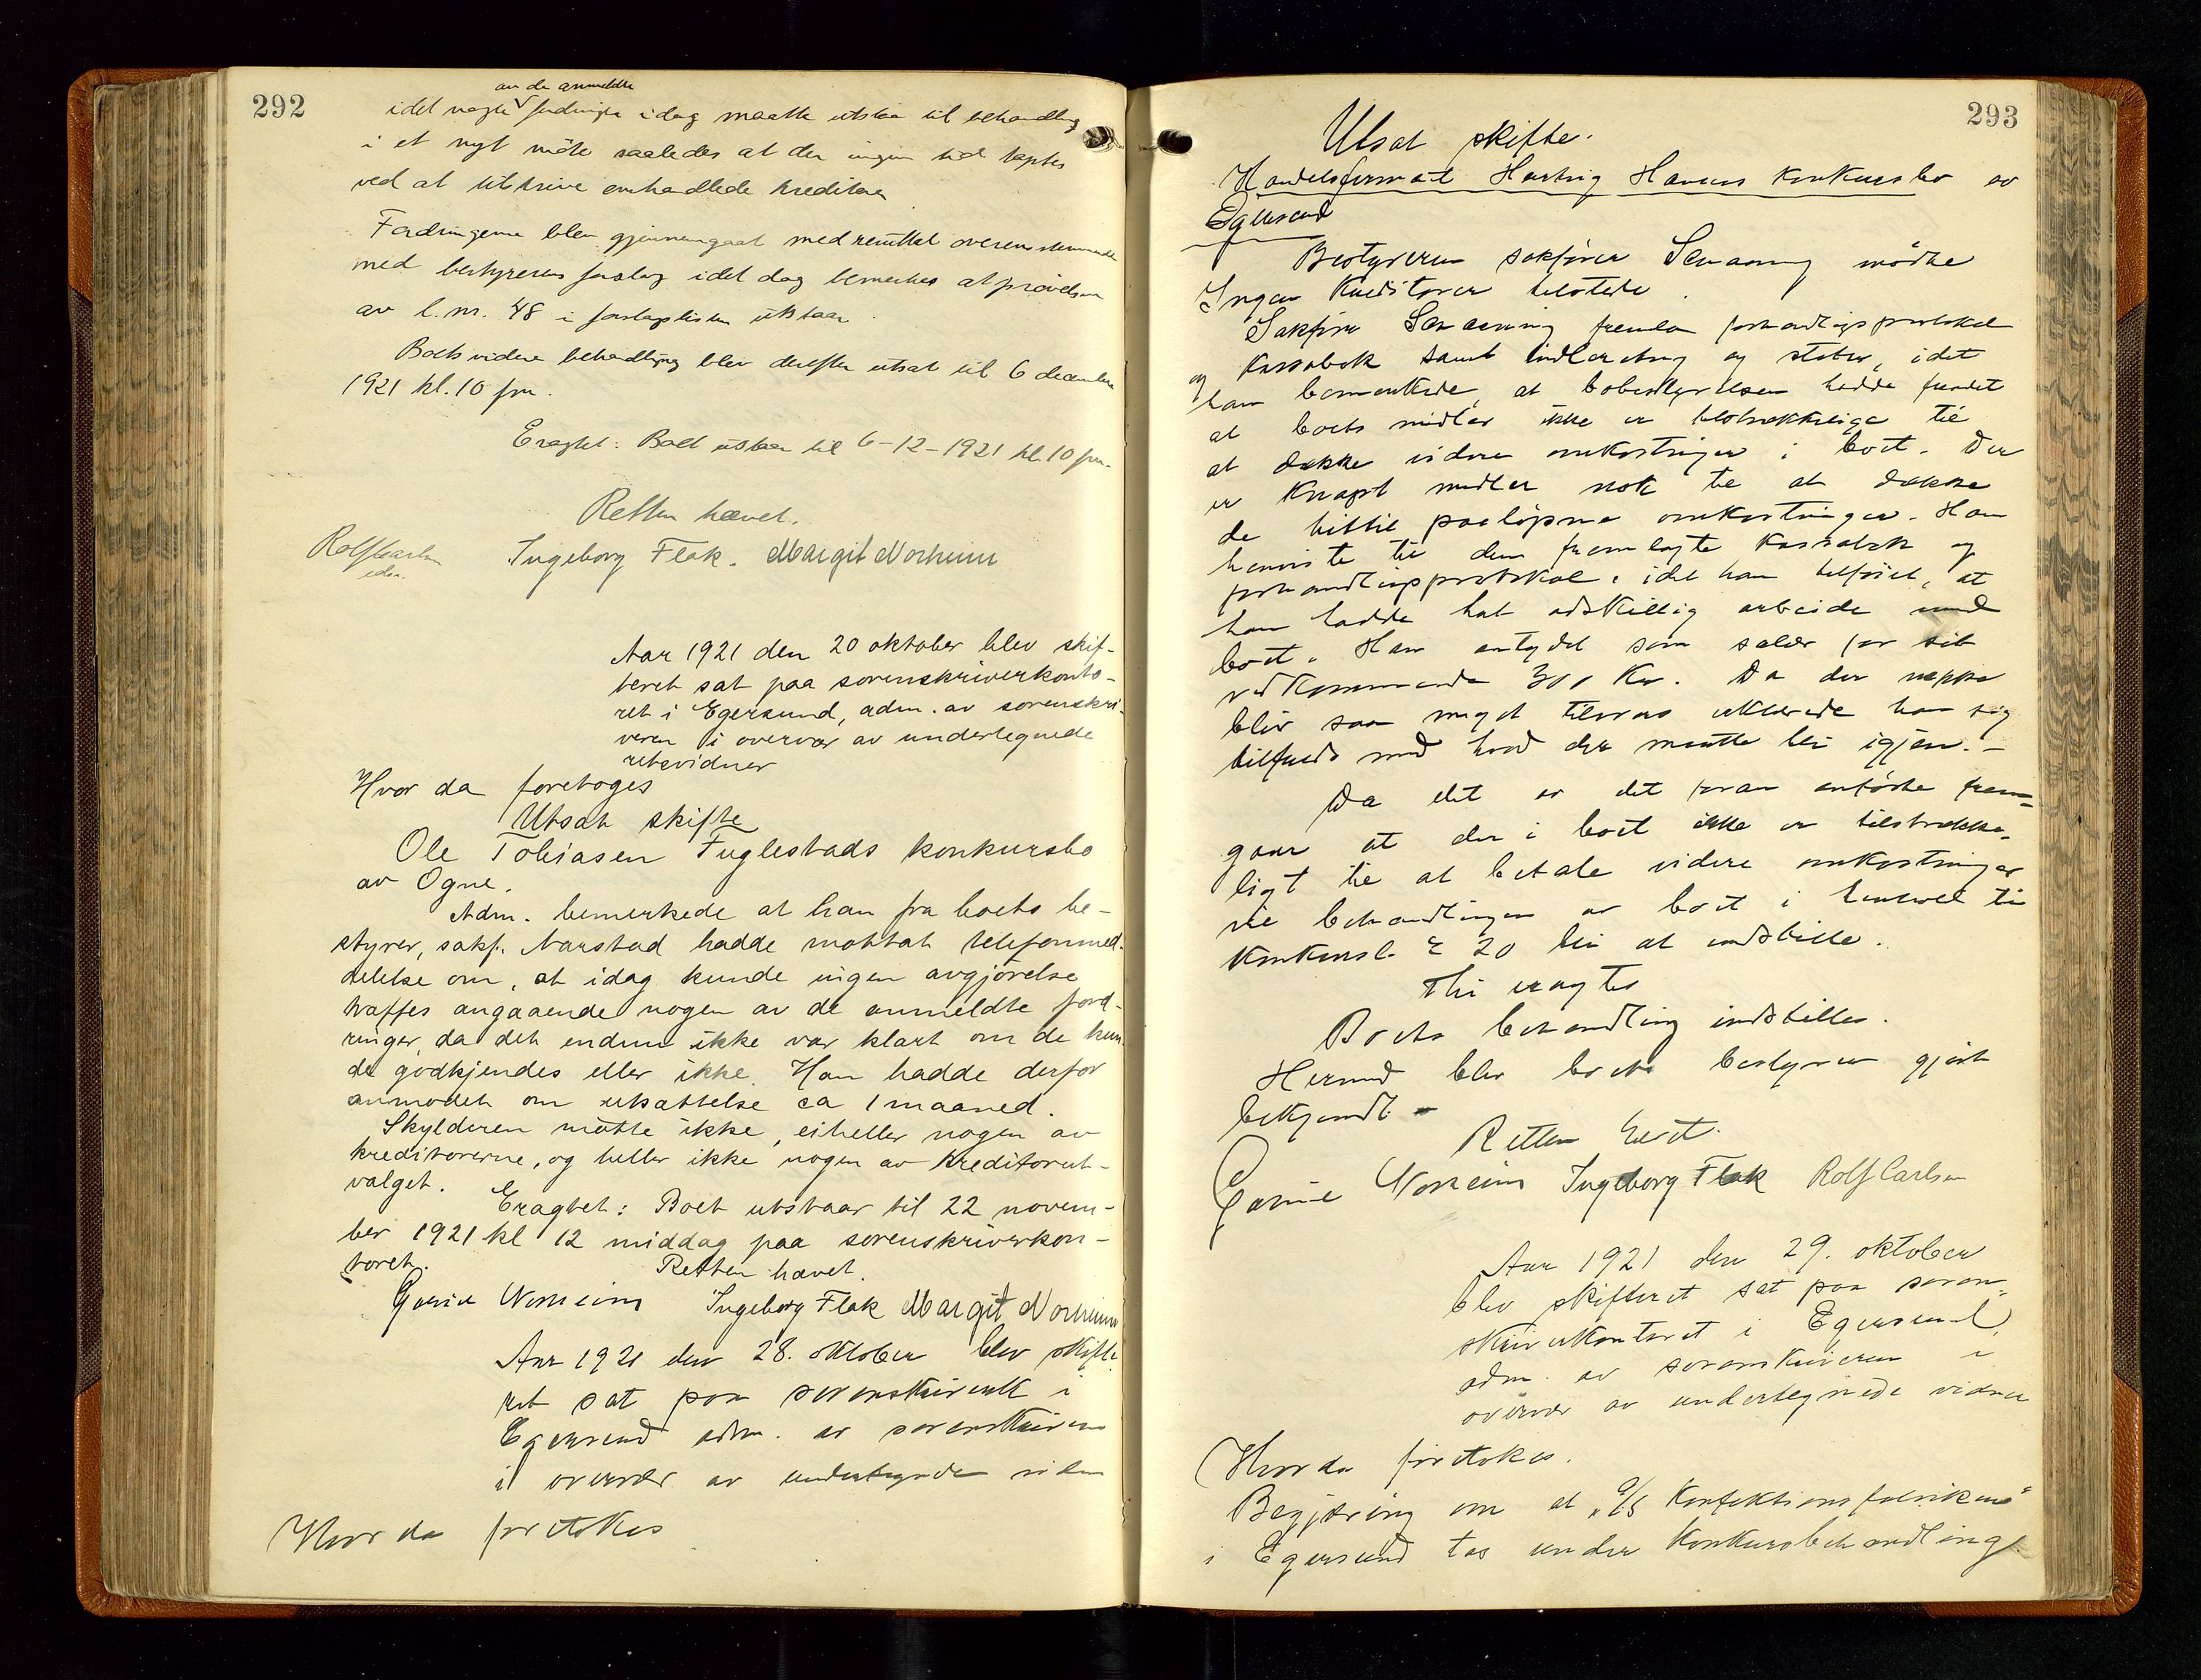 292
av de anmeldte
idet nogle fordringer idag maatte utstaa til behandling
i et nyt möte saaledes at der ingen tid taptes
ved at tilskrive omhandlede kreditorer
Fordringerne blev gjennemgaat med resultat overensstemmende
med bestyrerens forslag idet dog bemerkes at prövelsen
av l.nr. 48 i forslagslisten utstaar.
Boets videre behandling blev derefter utsat til 6 december
1921 kl. 10 fm.
Eragtet: Boet utstaar til 6-12-1921 kl. 10 fm.
Retten hævet.
Rolf Carlsen Ingeborg Flak. Margit Norheim
edsv.
Aar 1921 den 20 oktober blev skif-
teret sat paa sorenskriverkonto-
ret i Egersund, adm. av sorenskri-
veren i overvær av undertegnede
retsvidner
Hvor da foretoges
Utsat skifte
Ole Tobiasen Fuglestads konkursbo
av Ogne.
Adm. bemerkede at han fra boets be-
styrer, sakf. Aarstad hadde mottat telefonmed-
delelse om, at idag kunde ingen avgjörelse
træffes angaaende nogen av de anmeldte ford-
ringer, da det endnu ikke var klart om de kun
de godkjendes eller ikke. Han hadde derfor
anmodet om utsættelse ca 1 maaned.
Skylderen mötte ikke, eiheller nogen av
kreditorerne, og heller ikke nogen av kreditorut-
valget.
Eragtet: Boet utstaar til 22 novem-
ber 1921 kl 12 middag paa sorenskriverkon-
toret.
Retten hævet.
Norheim Ingeborg Flak Margit Norheim
Aar 1921 den 28. oktober blev skifte
ret sat paa sorenskriverktt i
Egersund adm. av sorenskriveren
i overvær av undertegnede vidner
Hvor da foretokes
293
Utsat skifte.
Handelsfirmaet Hartvig Hansens konkursbo av
Egersund
Bestyreren sakförer mödte
Ingen kreditorer tilstede.
Sakförer fremla forhandlingsprotokol
og kassabok samt indberetning og status, idet
han bemerkede, at bobestyrelsen hadde fundet
at boets midler ikke er tilstrækkelige til
at dække videre omkostninger i boet. Der
er knapt midler nok til at dække
de hittil paalöpne omkostninger. Han
henviste til den fremlagte kassabok og
forhandlingsprotokol, idet han tilföiet, at
han hadde hat adskillig arbeide med
boet. Han antydet som salær for sit
vedkommende 300 Kr. Da der neppe
blir saa meget tilovers erklærede han sig
tilfreds med hvad der maatte bli igjen. -
Da det av det foran anförte frem-
gaar at der i boet ikke er tilstrække-
ligt til at betale videre omkostninger
vil behandlingen av boet i henhold til
konkursl. § 20 bli at indstille.
Thi eragtes
Boets behandling indstilles.
Hermed blev boets bestyrer gjort
bekjendt. -
Retten hævet.
Norheim Ingeborg Flak Rolf Carlsen
Aar 1921 den 29. oktober
blev skifteret sat paa soren-
skriverkontoret i Egersund,
adm. av sorenskriveren i
overvær av undertegnede vidner
Hvor da foretokes.
Begjæring om at "A/S Konfektionsfabrikens"
i Egersund tas under konkursbehandling